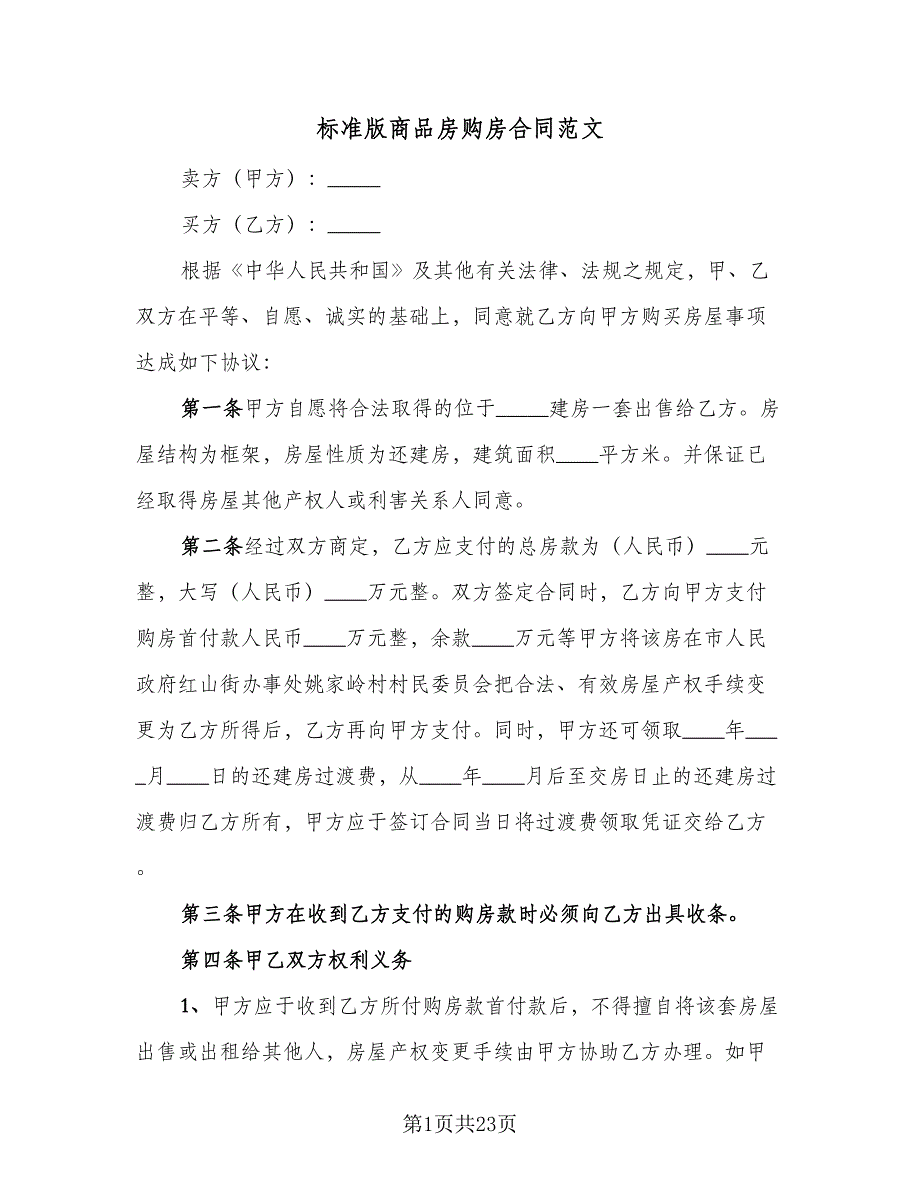 标准版商品房购房合同范文
卖方（甲方）：_____
买方（乙方）：_____
根据《中华人民共和国》及其他有关法律、法规之规定，甲、乙
双方在平等、自愿、诚实的基础上，同意就乙方向甲方购买房屋事项
达成如下协议：
第一条甲方自愿将合法取得的位于_____建房一套出售给乙方。房
屋结构为框架，房屋性质为还建房，建筑面积____平方米。并保证已
经取得房屋其他产权人或利害关系人同意。
第二条经过双方商定，乙方应支付的总房款为（人民币）____元
整，大写（人民币）____万元整。双方签定合同时，乙方向甲方支付
购房首付款人民币____万元整，余款____万元等甲方将该房在市人民
政府红山街办事处姚家岭村村民委员会把合法、有效房屋产权手续变
更为乙方所得后，乙方再向甲方支付。同时，甲方还可领取____年___
_月____日的还建房过渡费，从____年____月后至交房日止的还建房过
渡费归乙方所有，甲方应于签订合同当日将过渡费领取凭证交给乙方
。
第三条甲方在收到乙方支付的购房款时必须向乙方出具收条。
第四条甲乙双方权利义务
1、甲方应于收到乙方所付购房款首付款后，不得擅自将该套房屋
出售或出租给其他人，房屋产权变更手续由甲方协助乙方办理。如甲
第1页共23页